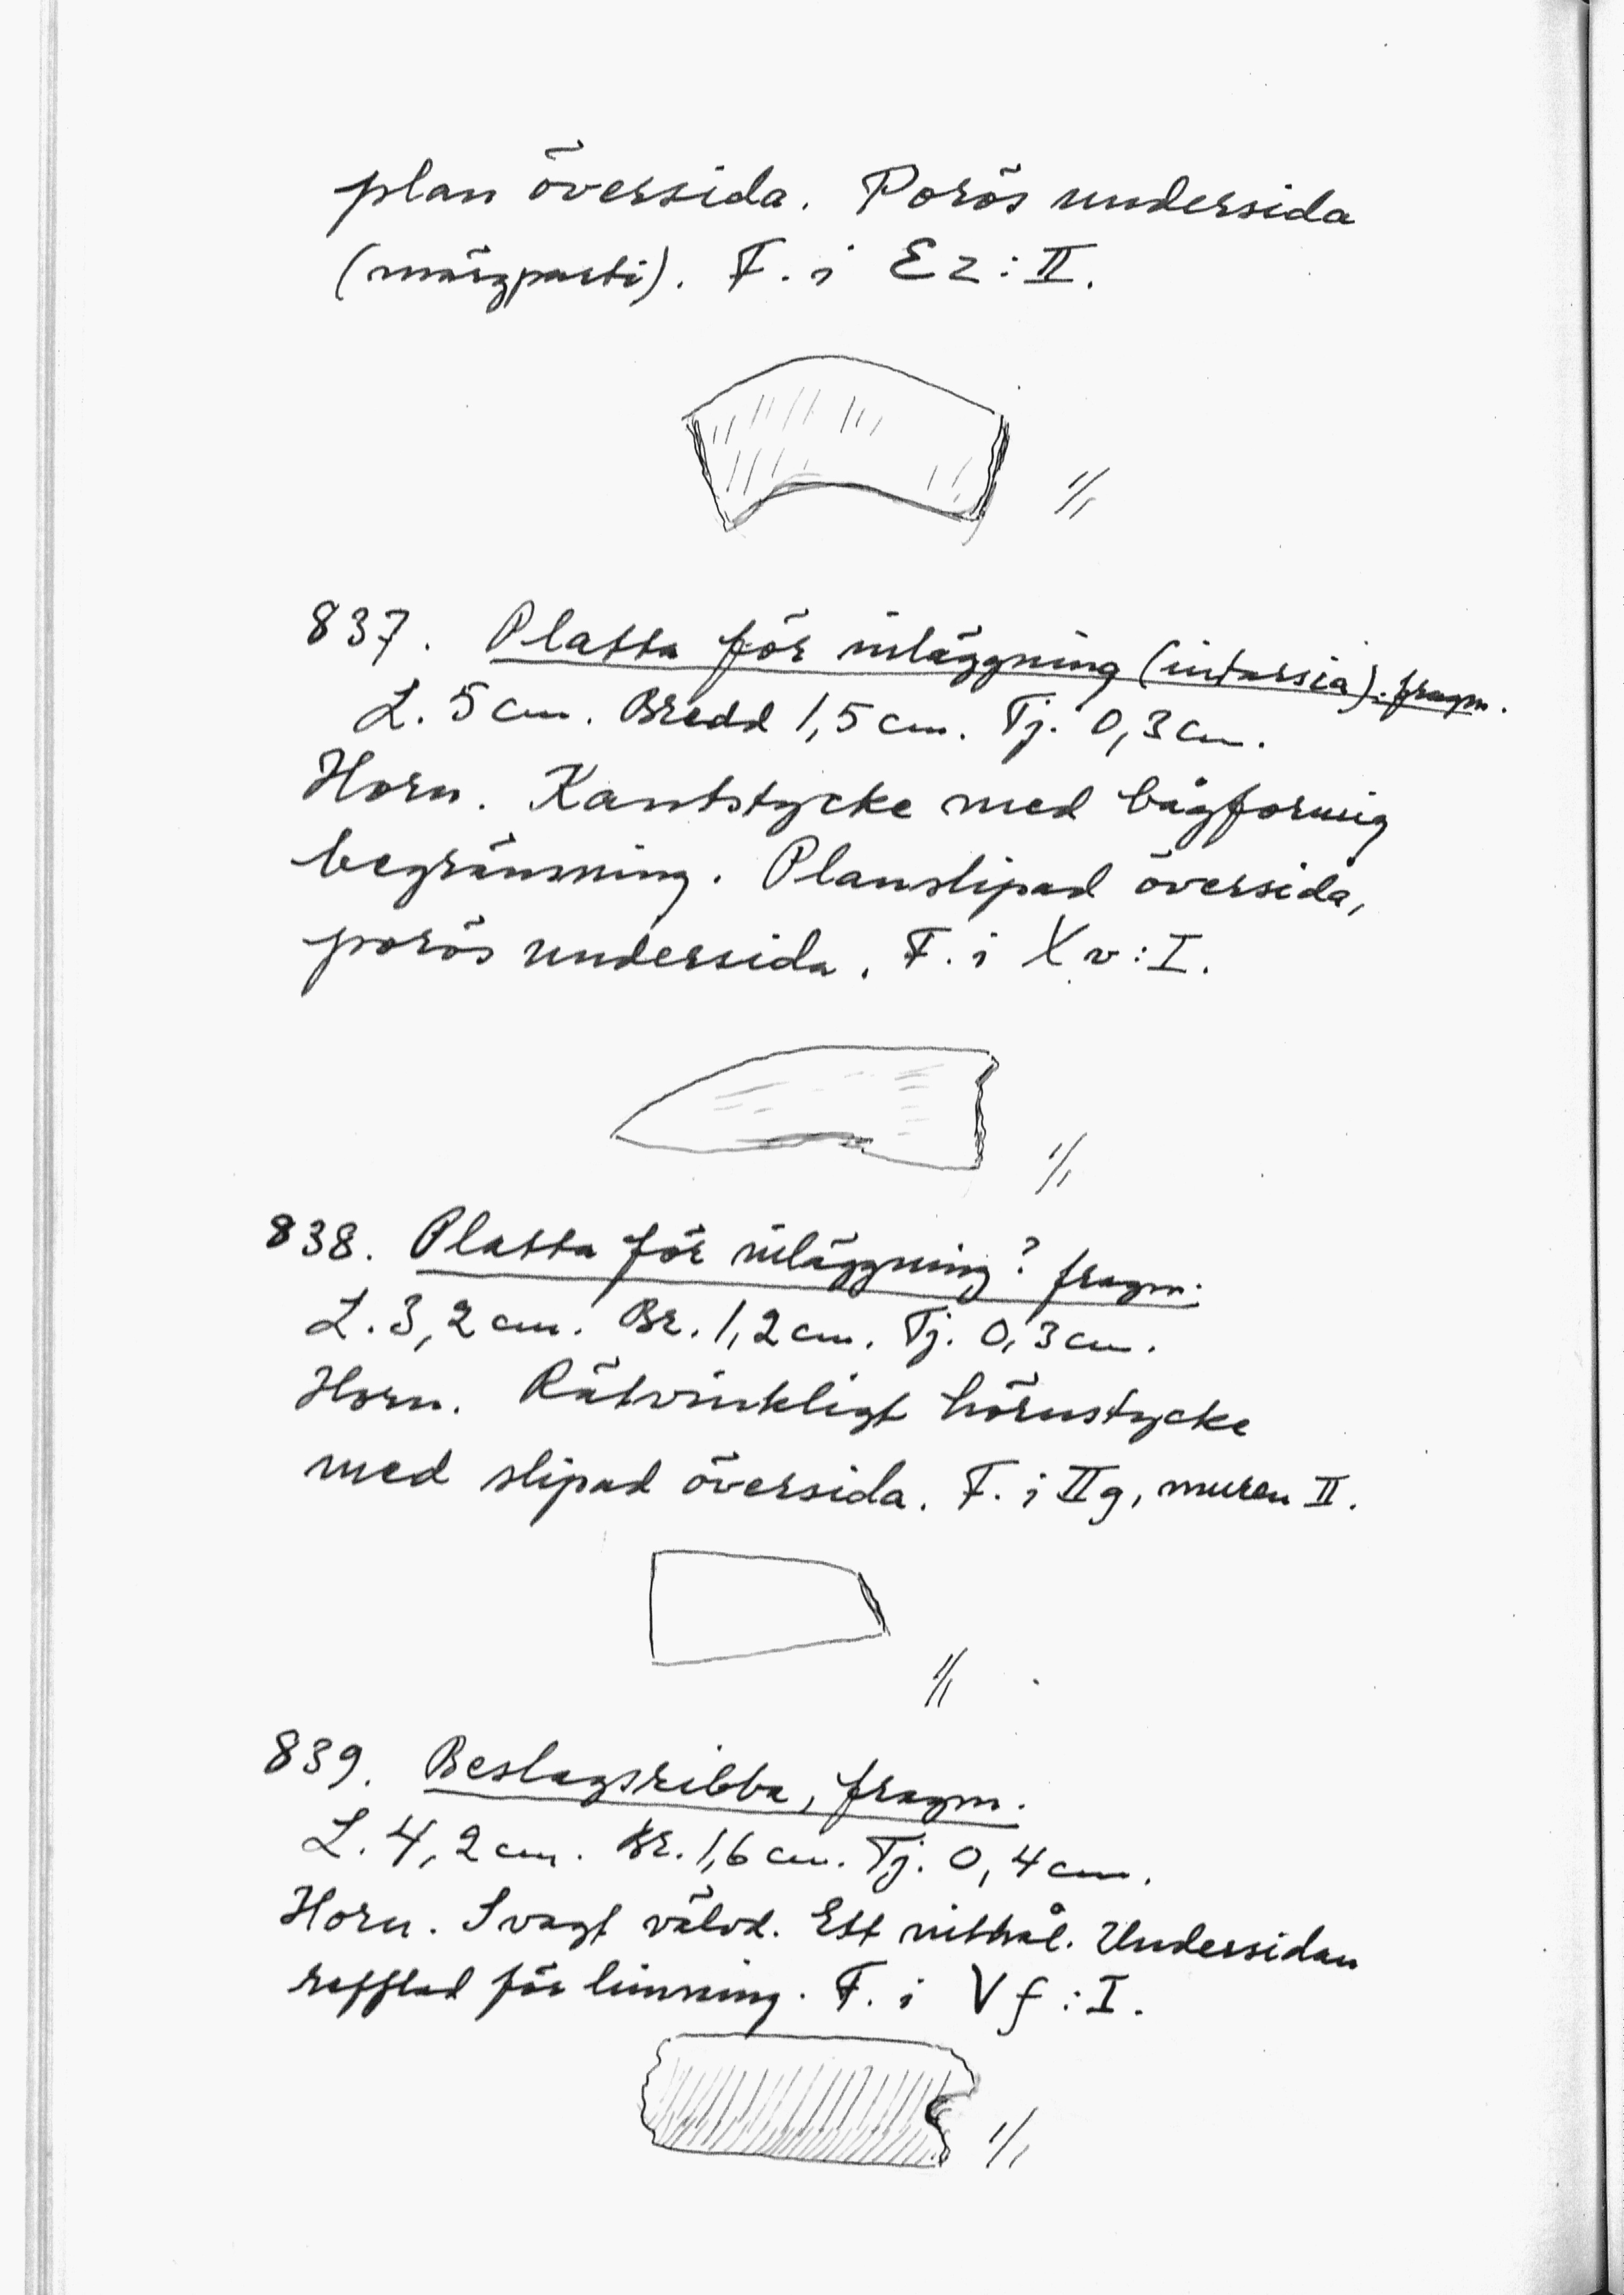 plan översida. Porös undersida
(märgparti). F. i Ez:II.
1/1
837. Platta för inläggning (intarsia). fragm.
L. 5 cm. Bredd 1,5 cm. Tj. 0,3 cm.
Horn. Kantstycke med bågformig
begränsning. Planslipad översida,
porös undersida. F. i Xv:I.
1/1
838. Platta för inläggning? fragm.
L. 3,2 cm. Br. 1,2 cm. Tj. 0,3 cm.
Horn. Rätvinkligt hörnstycke
med slipad översida. F. i IIg, muren II.
1/1
839. Beslagsribba, fragm.
L. 4,2 cm. Br. 1,6 cm. Tj. 0,4 cm.
Horn. Svagt välvd. Ett nithål. Undersidan
refflad för limning. F. i Vf:I.
1/1